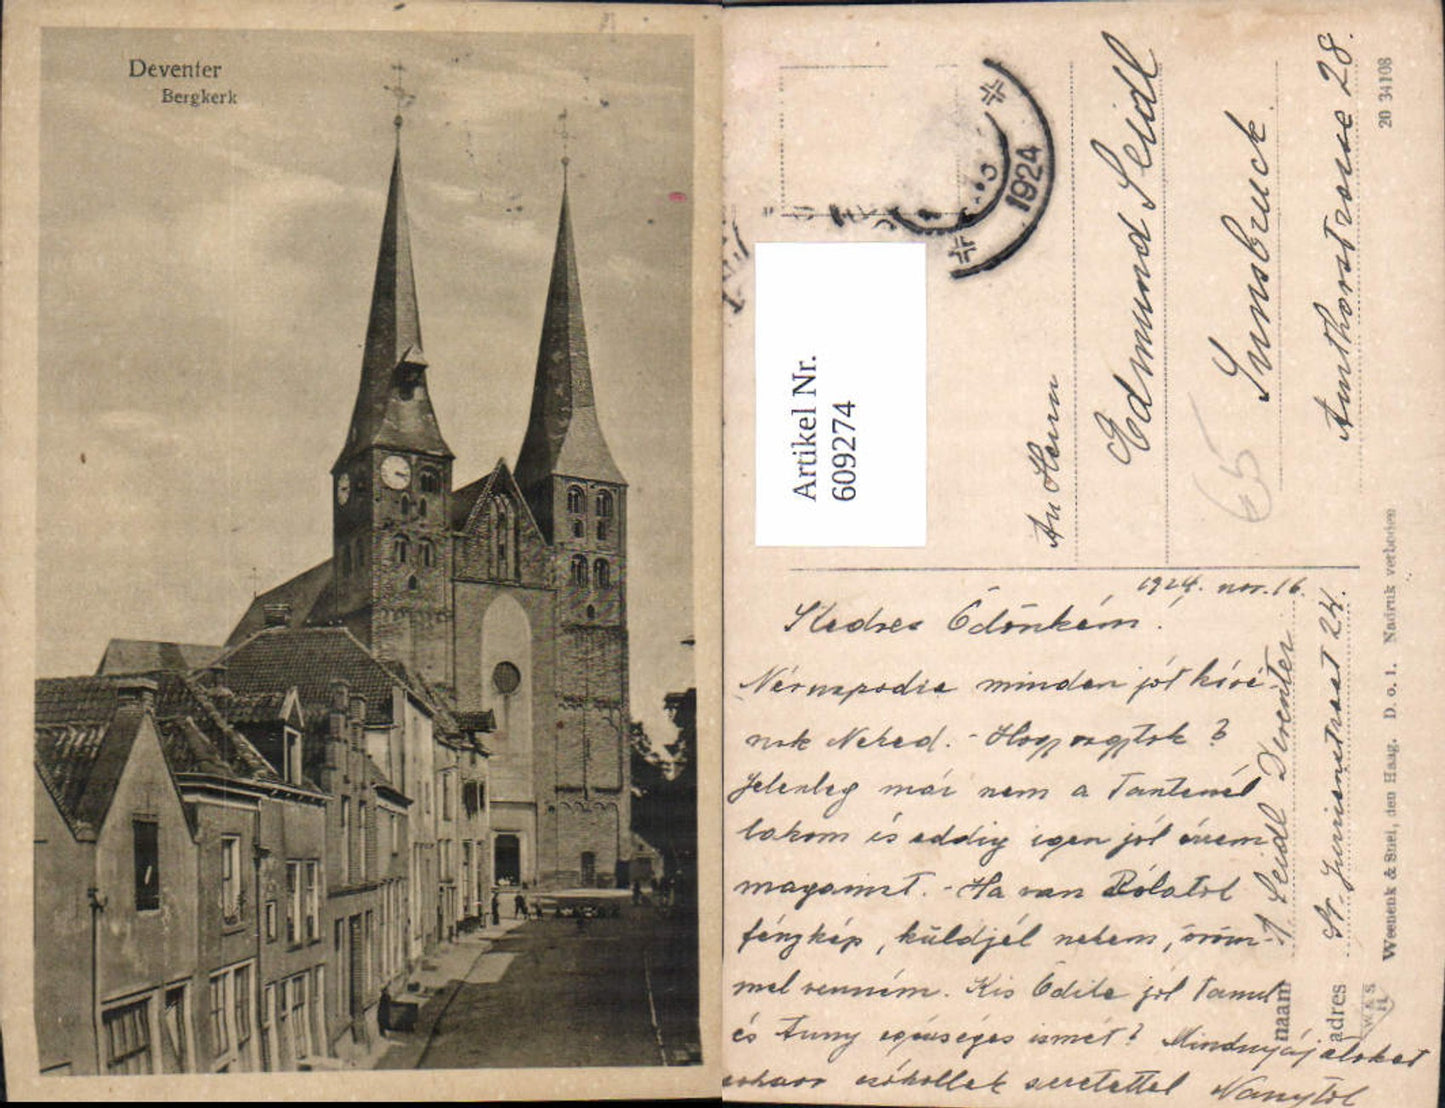 Deventer
Bergkerk
1924
Artikel Nr.
609274
An Herrn
Edmund Seidl
Innsbruck
Amthorstrasse 28.
65
20 34108
1924. nov. 16.
Kedves Ödönkém!
minden jót kívá-
nok Neked. - Hogy vagytok ?
Jelenleg már nem a Tantenál
lakom és eddig igen jól érzem
magamat. - Ha van Béláról
fénykép, küldjél nekem, öröm-
mel venném. Kis Ödike jól tanul
és Anny egészséges ismét? Mindnyájatokat
csókollak szeretettel
naam J. Seidl Deventer
adres St. Jurrienstraat 24.
Weenenk & Snel, den Haag. D. o. 1. Nadruk verboden
W & S
H